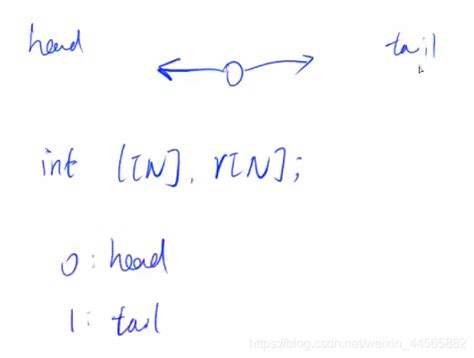 head tail
int l[N], r[N];
0: head
1: tail
https://blog.csdn.net/weixin_44565882